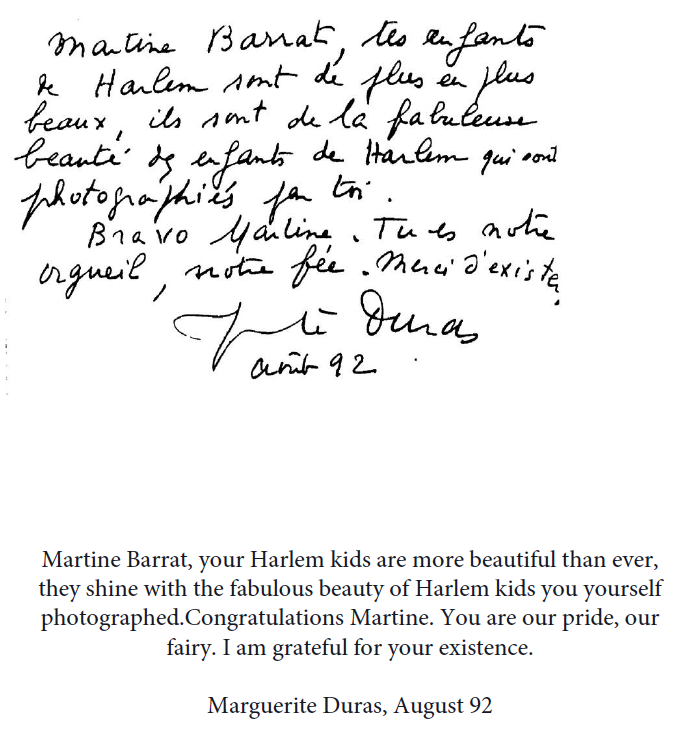 Martine Barrat, tes enfants
de Harlem sont de plus en plus
beaux, ils sont de la fabuleuse
beauté des enfants de Harlem qui sont
photographiés par toi.
Bravo Martine. Tu es notre
orgueil, notre fée. Merci d'exister.
Duras
août 92
Martine Barrat, your Harlem kids are more beautiful than ever,
they shine with the fabulous beauty of Harlem kids you yourself
photographed.Congratulations Martine. You are our pride, our
fairy. I am grateful for your existence.
Marguerite Duras, August 92